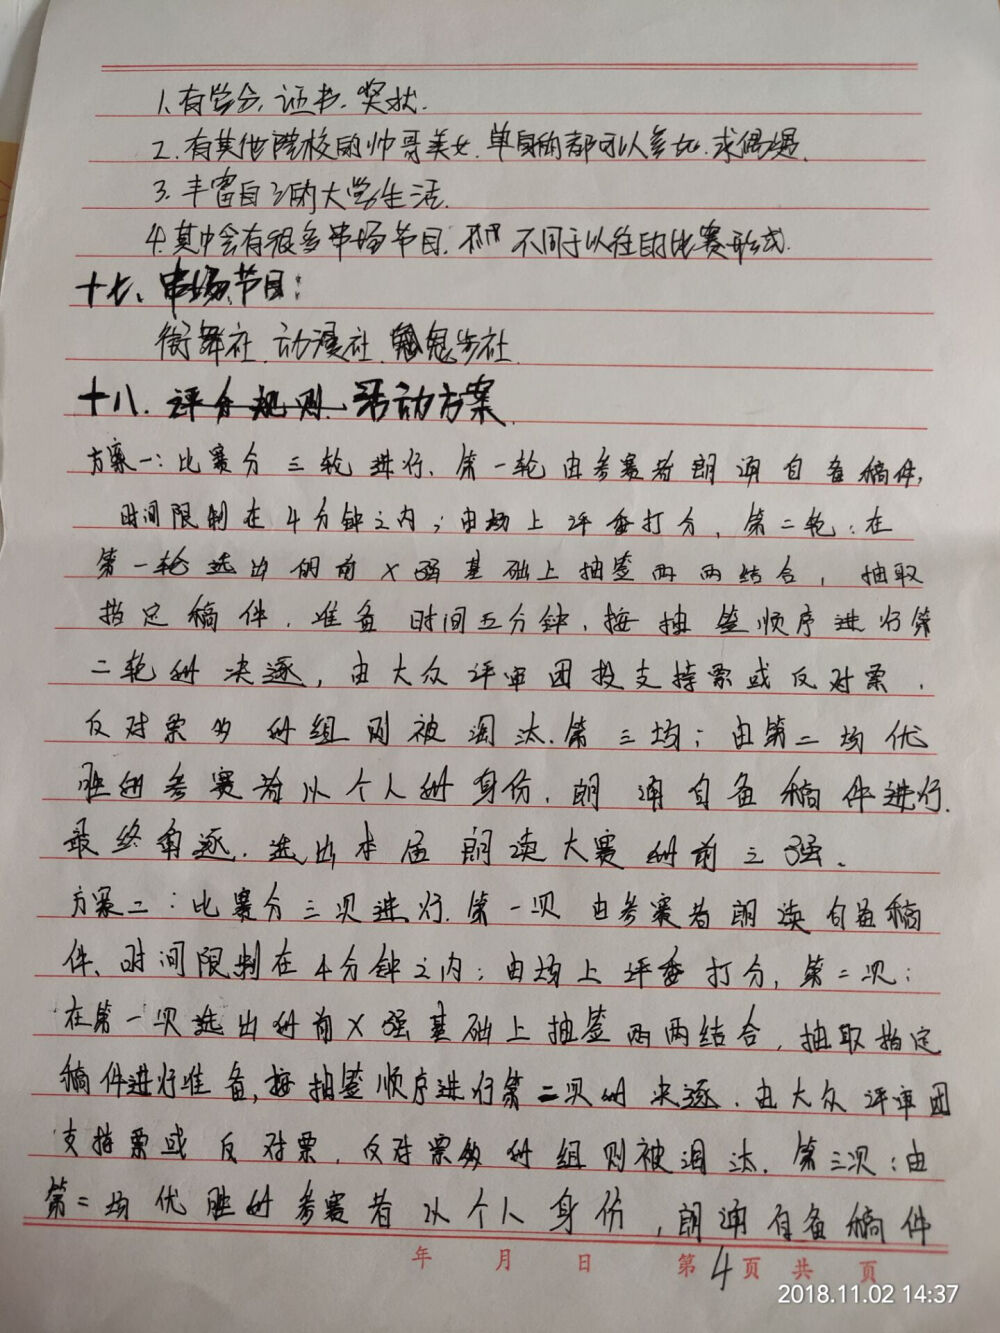 1、有学分、证书、奖状.
2、有其他院校的帅哥美女.单身的都可以参加.求偶遇.
3、丰富自己的大学生活.
4、其中会有很多串场节目. 不同于以往的比赛形式.
十七、串场节目:
街舞社、动漫社、鬼步社.
十八. 评分规则. 活动方案.
方案一:比赛分三轮进行、第一轮由参赛者朗诵自备稿件,
时间限制在4分钟之内;由场上评委打分,第二轮:在
第一轮选出的前X强基础上抽签两两结合,抽取
指定稿件.准备时间五分钟、按抽签顺序进行第
二轮的决逐,由大众评审团投支持票或反对票.
反对票多的组则被淘汰.第三场;由第二场优
胜的参赛者以个人的身份、朗诵自备稿件进行.
最终角逐.选出本届朗读大赛的前三强。
方案二:比赛分三次进行.第一次由参赛者朗读自备稿
件、时间限制在4分钟之内;由场上评委打分,第二次:
在第一次选出的前X强基础上抽签两两结合,抽取指定
稿件进行准备,按抽签顺序进行第二次的决逐.由大众评审团
支持票或反对票.反对票多的组则被淘汰.第三次:由
第二场优胜的参赛者以个人身份,朗诵自备稿件
年 月 日 第4页 共 页
2018.11.02 14:37